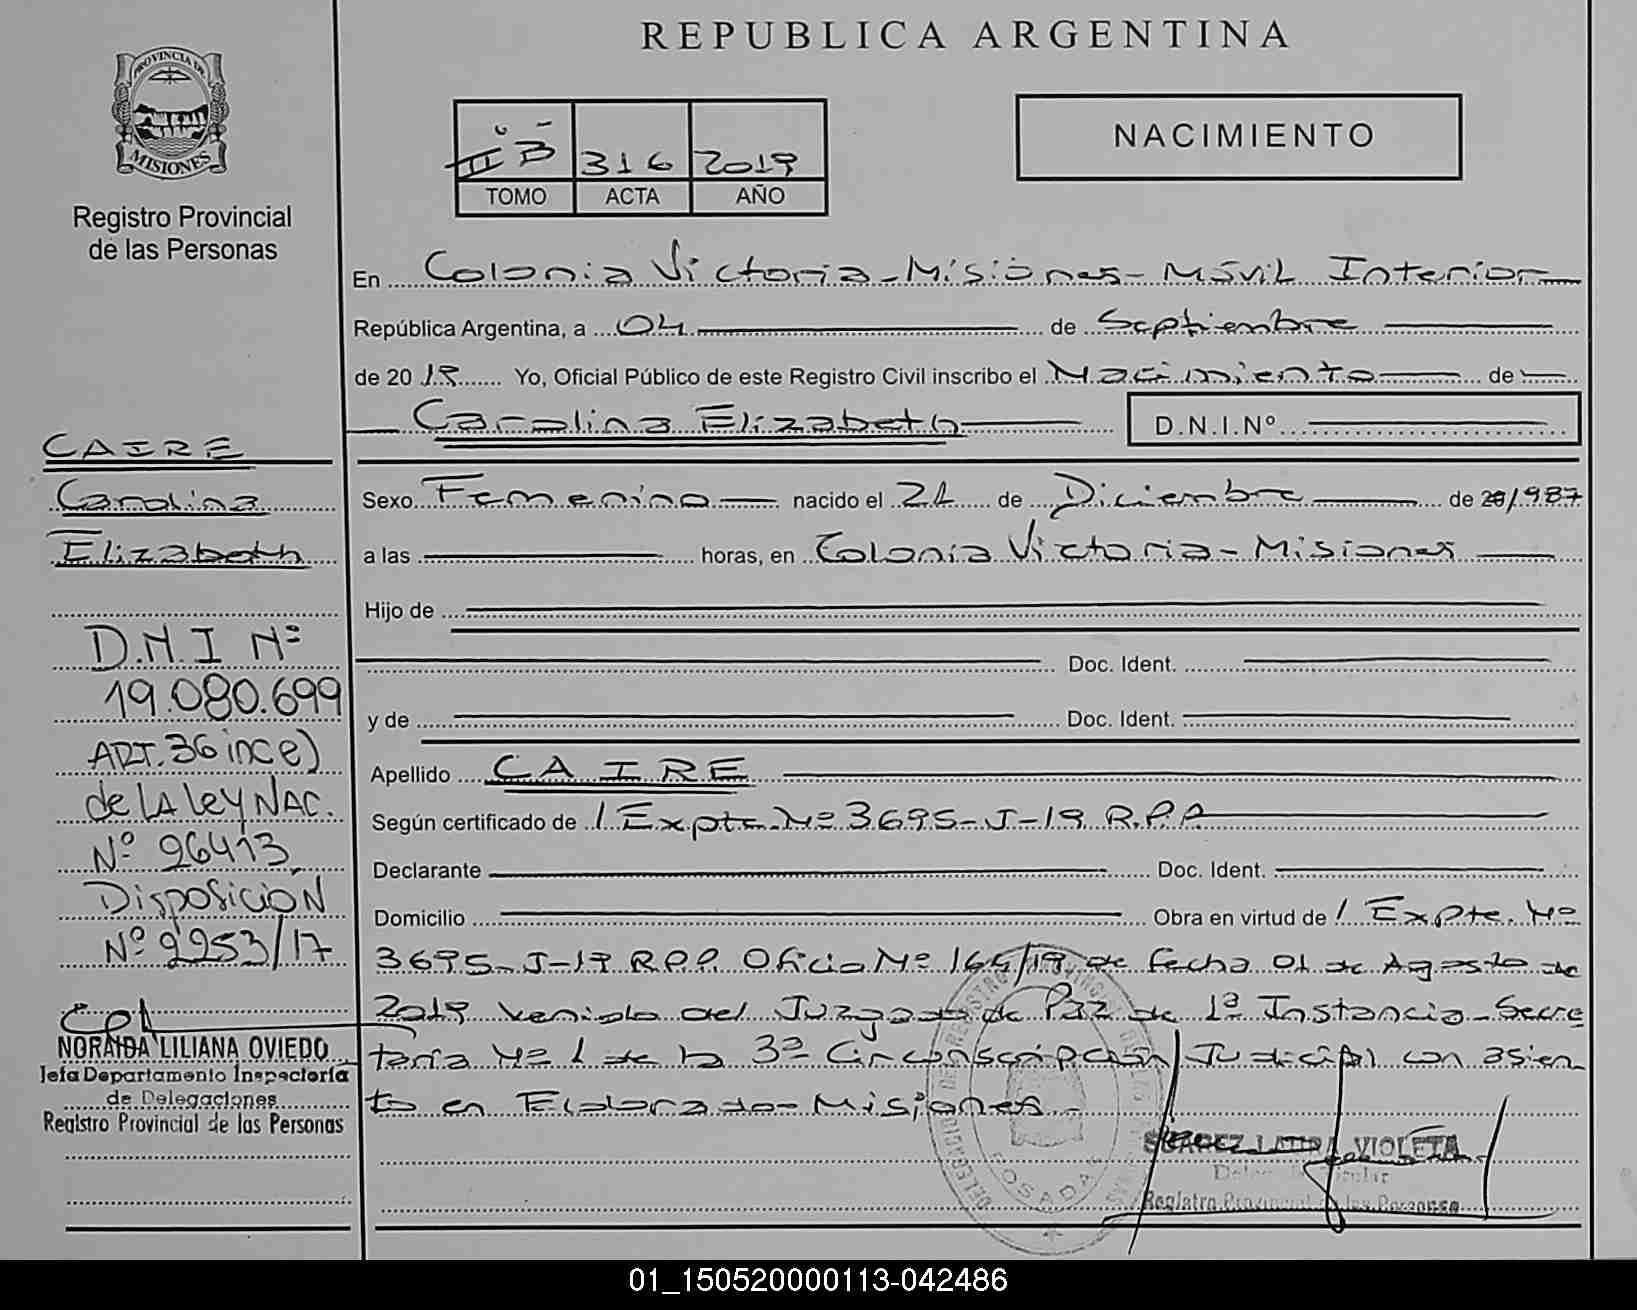 REPUBLICA ARGENTINA
PROVINCIA DE
MISIONES
Registro Provincial
de las Personas
NACIMIENTO
II B 316 2019
TOMO ACTA AÑO
En Colonia Victoria - Misiones - Móvil Interior
República Argentina, a 04 de Septiembre
de 2019 Yo, Oficial Público de este Registro Civil inscribo el Nacimiento de
Carolina Elizabeth D.N.I.Nº
Sexo Femenino nacido el 21 de Diciembre de 1987
a las horas, en Colonia Victoria - Misiones
Hijo de
Doc. Ident.
y de Doc. Ident.
Apellido CAIRE
Según certificado de / Expte. Nº 3695-J-19 R.P.P.
Declarante Doc. Ident.
Domicilio Obra en virtud de / Expte. Nº
3695-J-19 R.P.P. Oficio Nº /19 de fecha 01 de Agosto de
2019 venido del Juzgado de Paz de 1ª Instancia - Secre
taria Nº 1 de la 3ª Circunscripcion Judicial con asien
to en Eldorado - Misiones.-
CAIRE
Carolina
Elizabeth
D.N.I Nº
19.080.699
ART. 36 inc e)
de LA Ley NAC.
Nº 26413
Disposición
Nº 2253/17
NORAIDA LILIANA OVIEDO
Jefa Departamento Inspectoría
de Delegaciones
Registro Provincial de las Personas
POSADAS
SUAREZ LAURA VIOLETA
Registro Provincial de las Personas
01_150520000113-042486